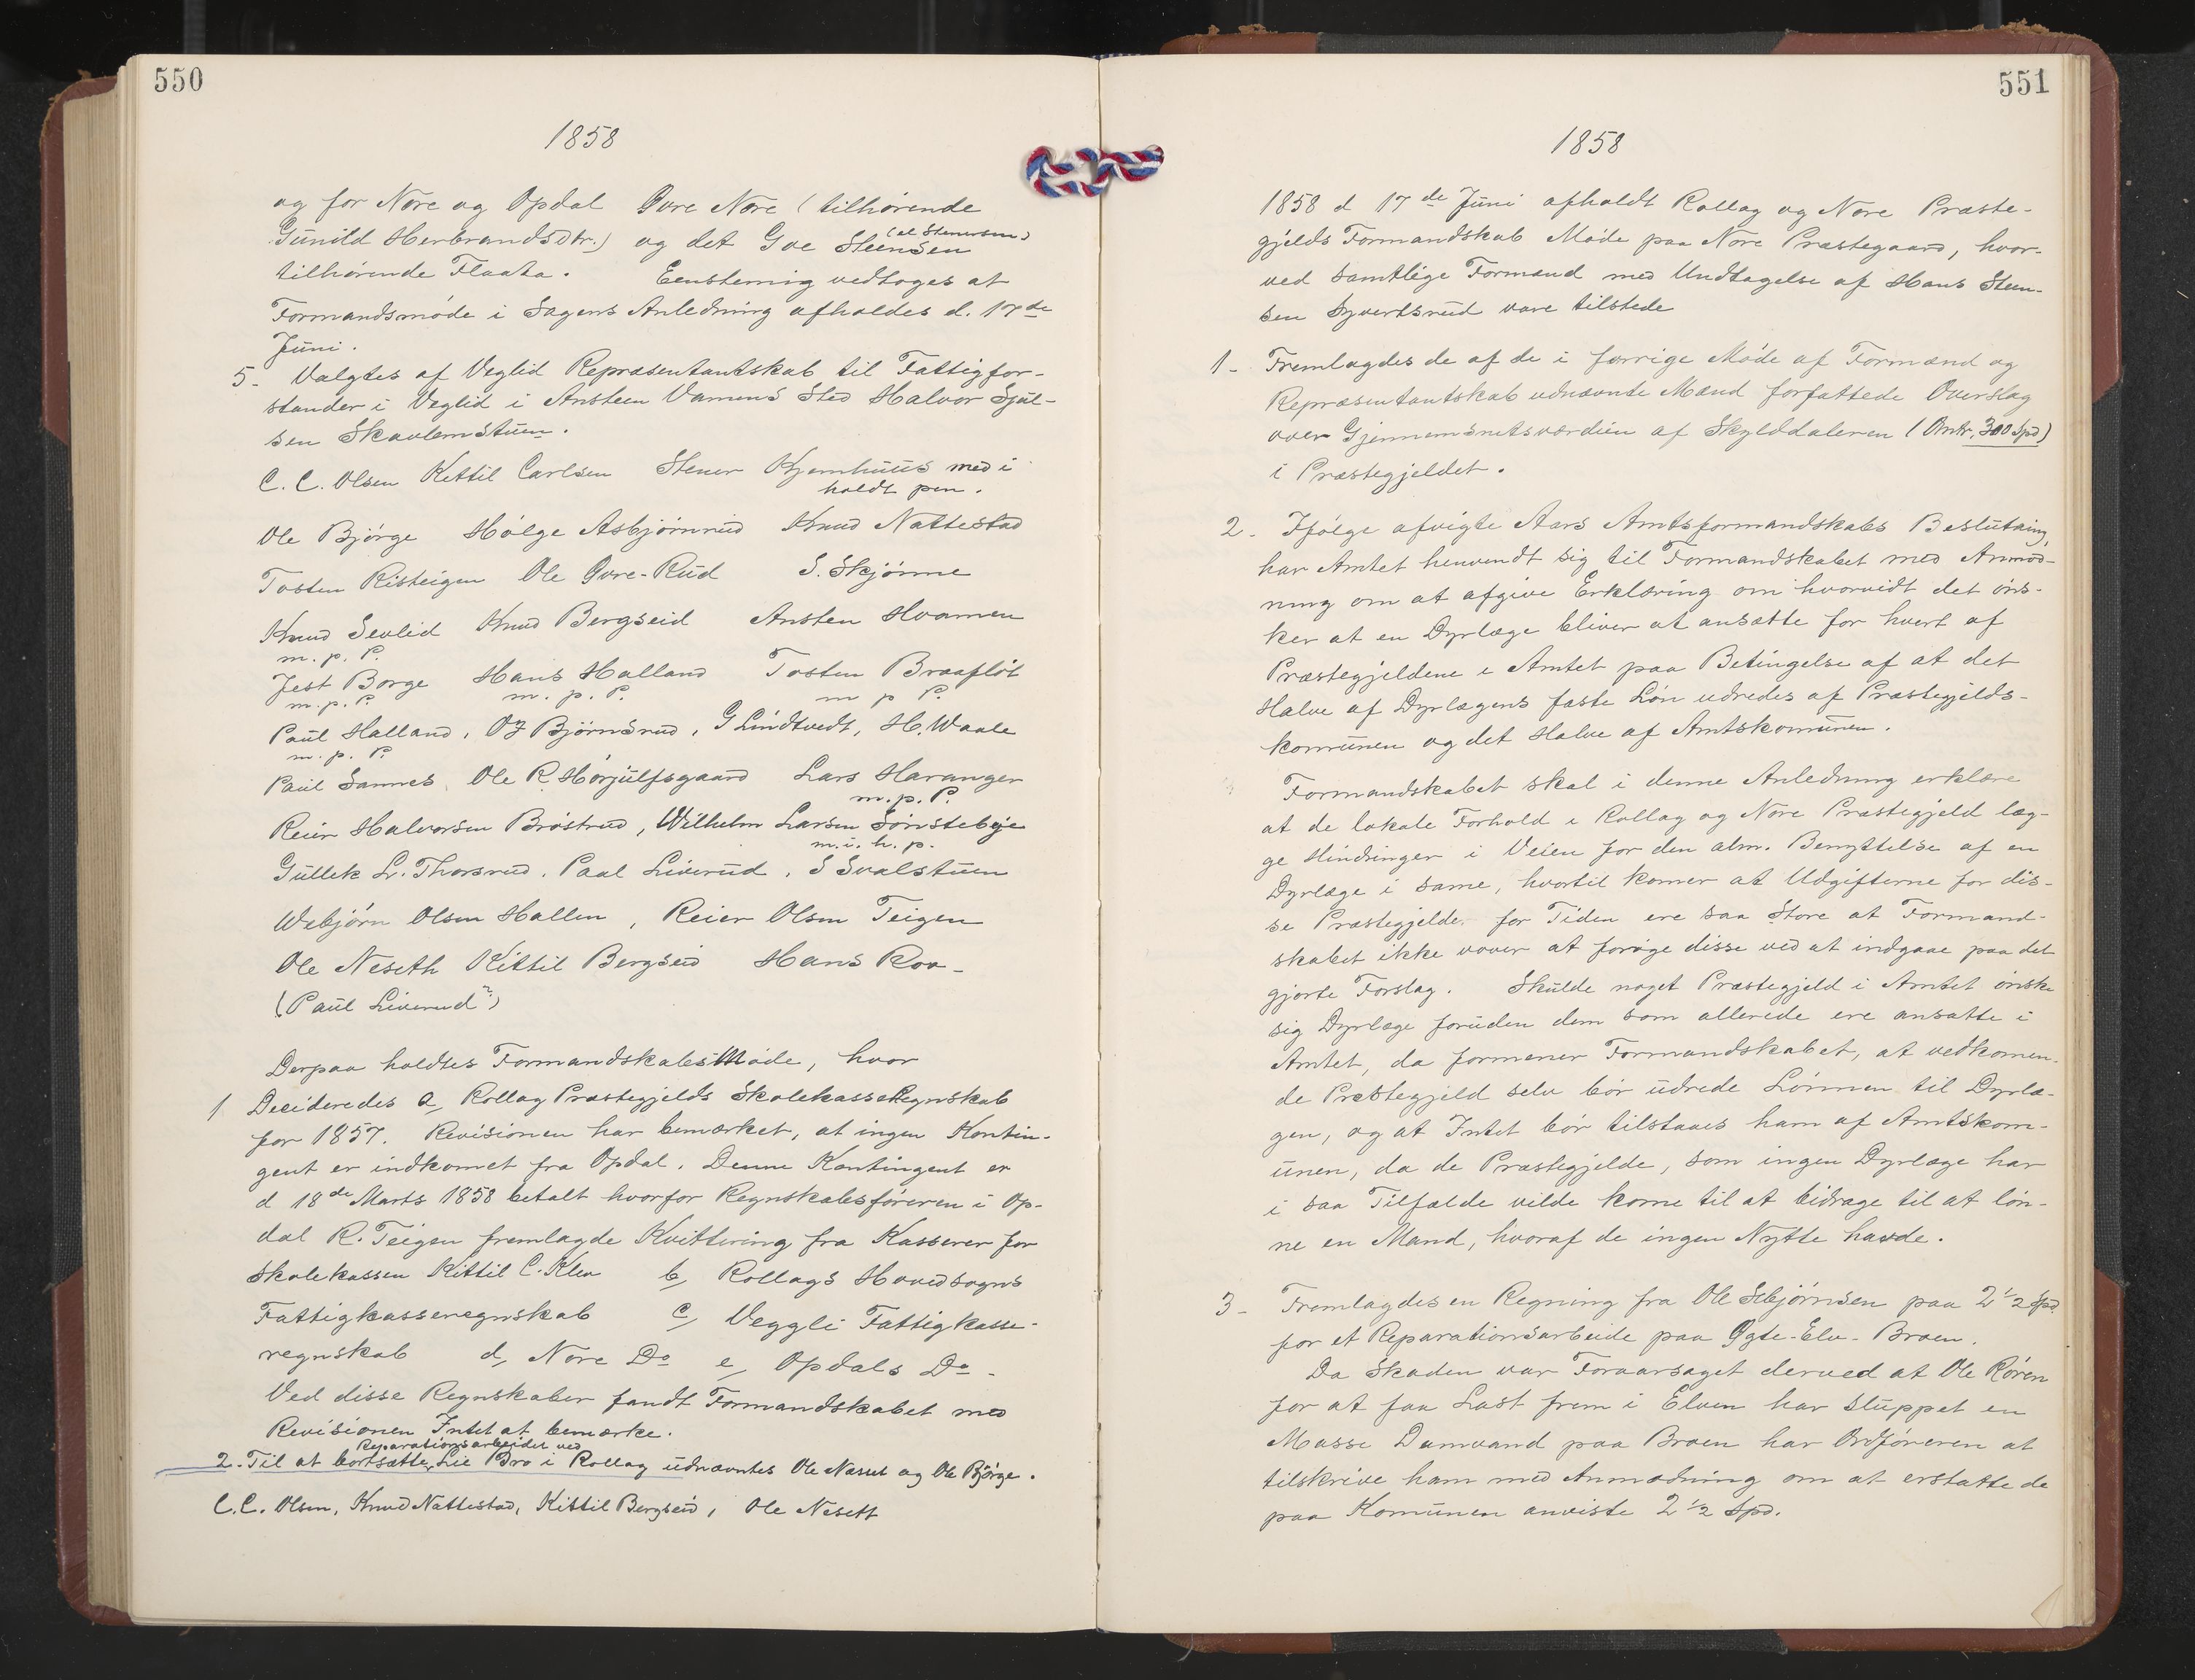 550
1858
og for Nore og Opdal Gvre Nore (tilhørende
Gunild Herbrandsdtr.) og det Gve Steensen (al Stenersen)
tilhørende Flaata. Eenstemig vedtoges at
Formandsmøde i Sagens Anledning afholdes d. 17de
Juni.
5- Valgtes af Veglid Repræsentantskab til Fattigfor-
stander i Veglid i Ansteen Vamens Sted Halvor Gjul-
sen Skavlemstuen.
C. C. Olsen Kettil Carlsen Stener Kjemhuus med i
holdt pen.
Ole Bjørge Hølge Asbjørnrud Knud Nattestad
Tosten Risteigen Ole Gvre-Rud S. Skjønne
Knud Sevlid Knud Bergseid Ansten Hvamen
m. p. P.
Jest Borge Hans Halland Tosten Braafløt
m. p. P. m. p. P. m p P.
Paul Halland, OJ Bjørnsrud, G Lindtvedt, H. Waale
m. p. P.
Paul Sannes Ole R. Hørjulfsgaard Lars Haranger
m. p. P.
Reier Halvorsen Brøstrud, Wilhelm Larsen Sønstebøe
m. i. h. p.
Gullek L. Thorsrud. Paal Liverud, S Svalstuen
Webjørn Olsen Hallen, Reier Olsen Teigen
Ole Neseth Kittil Bergseid Hans Roa-
(Paul Liverud?)
Derpaa holdtes FormandskabsMøde, hvor
1 Decideredes a, Rollag Præstegjelds SkolekasseRegnskab
for 1857. Revisionen har bemærket, at ingen Kontin-
gent er indkomet fra Opdal. Denne Kontingent er
d 18de Marts 1858 betalt hvorfor Regnskabsføreren i Op-
dal R. Teigen fremlagde Kvittering fra Kasserer for
Skolekassen Kittil C. Klev b, Rollags Hovedsogns
Fattigkasseregnskab c, Veggli Fattigkasse-
regnskab d, Nore Do e, Opdals Do -
Ved disse Regnskaber fandt Formandskabet med
Revisionen Intet at bemærke.
Reparationsarbeidet ved
2. Til at bortsætte Lie Bro i Rollag udnævntes Ole Næset og Ole Bjørge.
C. C. Olsen, Knud Nattestad, Kittil Bergseid, Ole Nesett
551
1858
1858 d 17de Juni afholdt Rollag og Nore Præste-
gjelds Formandskab Møde paa Nore Præstegaard, hvor-
ved samtlige Formænd med Undtagelse af Hans Steen-
sen Syvertsrud vare tilstede
1- Fremlagdes de af de i forrige Møde af Formænd og
Repræsentantskab udnævnte Mænd forfattede Overslag
over Gjennemsnitsværdien af Skylddaleren (Omtr. 300 Spd)
i Præstegjeldet.
2- Ifølge afvigte Aars Amtsformandskabs Beslutning,
har Amtet henvendt sig til Formandskabet med Anmod-
ning om at afgive Erklæring om hvorvidt det øns-
ker at en Dyrlæge bliver at ansætte for hvert af
Præstegjeldene i Amtet paa Betingelse af at det
Halve af Dyrlægens faste Løn udredes af Præstegjelds-
komunen og det Halve af Amtskomunen.
Formandskabet skal i denne Anledning erklære
at de lokale Forhold i Rollag og Nore Præstegjeld læg-
ge Hindringer i Veien for den alm. Benyttelse af en
Dyrlæge i same, hvortil komer at Udgifterne for dis-
se Præstegjelde for Tiden ere saa Store at Formand-
skabet ikke vover at forøge disse ved at indgaae paa det
gjorte Forslag. Skulde noget Præstegjeld i Amtet ønske
sig Dyrlæge foruden dem som allerede ere ansatte i
Amtet, da formener Formandskabet, at vedkomen-
de Præstegjeld selv bør udrede Lønnen til Dyrlæ-
gen, og at Intet bør tilstaaes ham af Amtskom-
unen, da de Præstegjelde, som ingen Dyrlæge har
i saa Tilfælde vilde kome til at bidrage til at løn-
ne en Mand, hvoraf de ingen Nytte havde.
3- Fremlagdes en Regning fra Ole Esbjørnsen paa 2 1/2 Spd.
for et Reparationsarbeide paa Ygte-Elv-Broen.
Da Skaden var Foraarsaget derved at Ole Røren
for at faa Last frem i Elven har sluppet en
Masse Damvand paa Broen har Ordføreren at
tilskrive ham med Anmodning om at erstatte de
paa Komunen anviste 2 1/2 Spd.